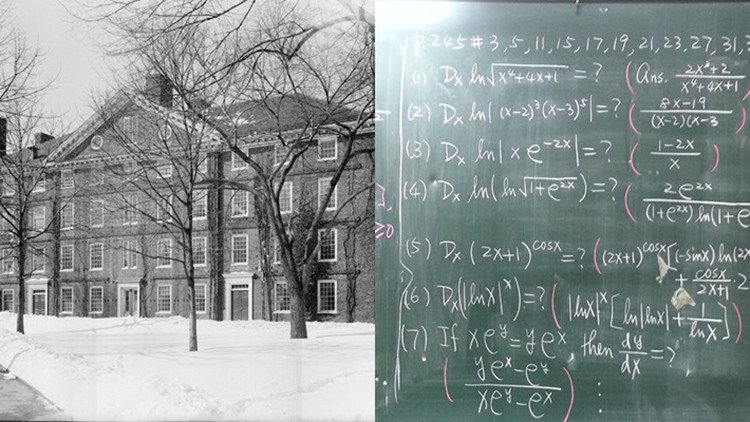 P.245 # 3, 5, 11, 15, 17, 19, 21, 23, 27, 31, 3
(1) Dx ln√(x⁴+4x+1) = ? (Ans. (2x³+2)/(x⁴+4x+1)
(2) Dx ln|(x-2)³(x-3)⁵| = ? ((8x-19)/((x-2)(x-3)
(3) Dx ln|x e^(-2x)| = ? ((1-2x)/x)
(4) Dx ln(ln√(1+e^(2x))) = ? (2e^(2x)/((1+e^(2x))ln(1+e
(5) Dx (2x+1)^(cosx) = ? ((2x+1)^(cosx)[(-sinx)ln(2x
+ cosx/(2x+1)·2
(6) Dx(|lnx|^x) = ? (|lnx|^x[ln|lnx|+1/lnx])
(7) If xe^y = ye^x then dy/dx = ?
((ye^x-e^y)/(xe^y-e^x))